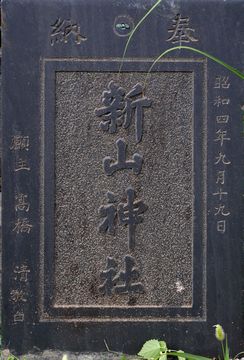 奉納
昭和四年九月十九日
新山神社
願主 高橋 清敬白